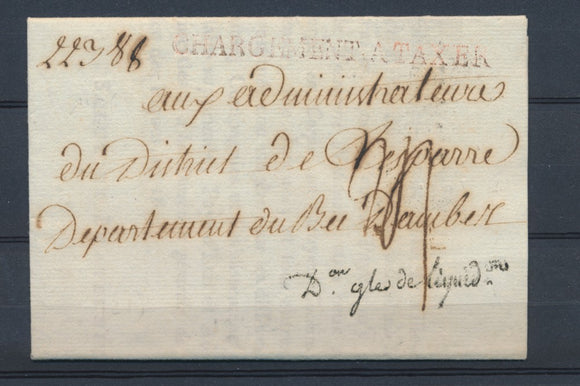 22388
CHARGEMENT A TAXER
aux administrateurs
du District de Lesparre
Departement du Bec Dambest
D.on gle de liquid.on